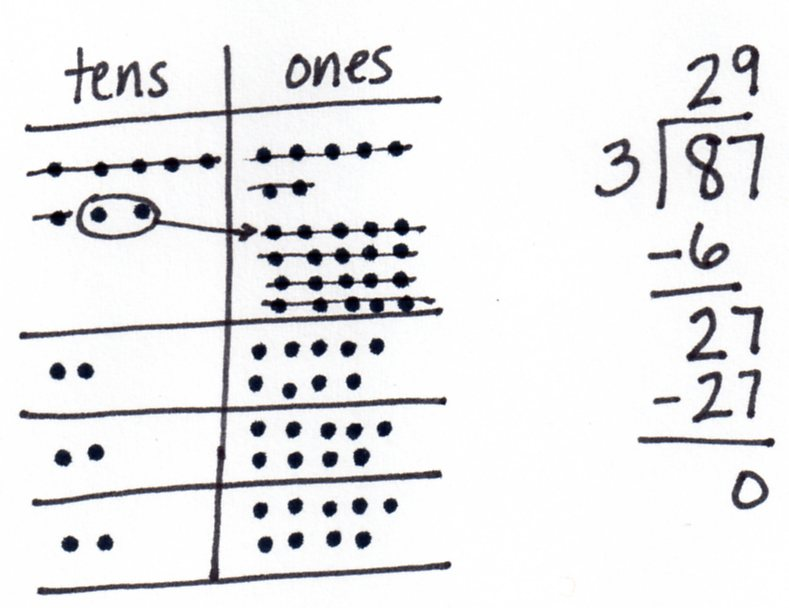 tens ones
29
3 87
-6
27
-27
0